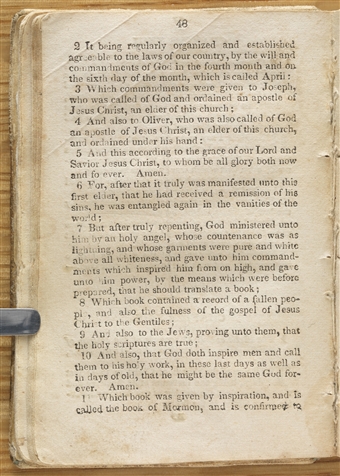 48
2 It being regularly organized and established
agreeable to the laws of our country, by the will and
commandments of God in the fourth month and on
the sixth day of the month, which is called April:
3 Which commandments were given to Joseph,
who was called of God and ordained an apostle of
Jesus Christ, an elder of this church;
4 And also to Oliver, who was also called of God
an apostle of Jesus Christ, an elder of this church,
and ordained under his hand:
5 And this according to the grace of our Lord and
Savior Jesus Christ, to whom be all glory both now
and forever. Amen.
6 For, after that it truly was manifested unto this
first elder, that he had received a remission of his
sins, he was entangled again in the vanities of the
world;
7 But after truly repenting, God ministered unto
him by an holy angel, whose countenance was as
lightning, and whose garments were pure and white
above all whiteness, and gave unto him command-
ments which inspired him from on high, and gave
unto him power, by the means which were before
prepared, that he should translate a book;
8 Which book contained a record of a fallen peo-
ple, and also the fulness of the gospel of Jesus
Christ to the Gentiles;
9 And also to the Jews, proving unto them, that
the holy scriptures are true;
10 And also, that God doth inspire men and call
them to his holy work, in these last days as well as
in days of old, that he might be the same God for-
ever. Amen.
11 Which book was given by inspiration, and is
called the book of Mormon, and is confirmed to